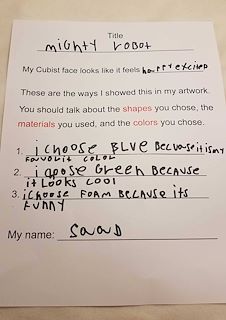 Title
mighty robot
My Cubist face looks like it feels happy excited
These are the ways I showed this in my artwork.
You should talk about the shapes you chose, the
materials you used, and the colors you chose.
1. i choose BLVE BecUaseit is my
FavOuritE color
2. i qpose Green BECAUSE
it Looks cool
3. i choose FOAM BECAUSE its
FUNNY
My name: Saad